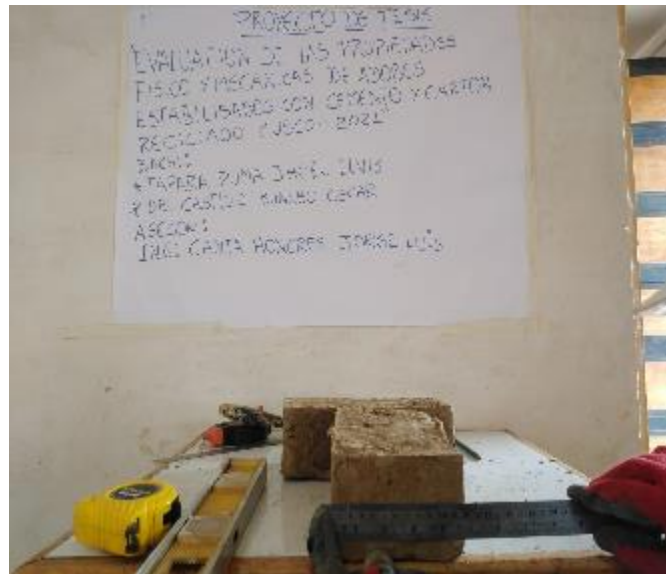 PROYECTO DE TESIS
EVALUACION DE LAS PROPIEDADES
FISICO Y MECANICAS DE ADOBES
ESTABILISADOS CON CEMENTO Y CARTON
RECICLADO CUSCO 2021
BACH:
PUMA LUIS
DEL CASTILLO CESAR
ASESOR:
ING CANTA HONORES JORGE LUIS